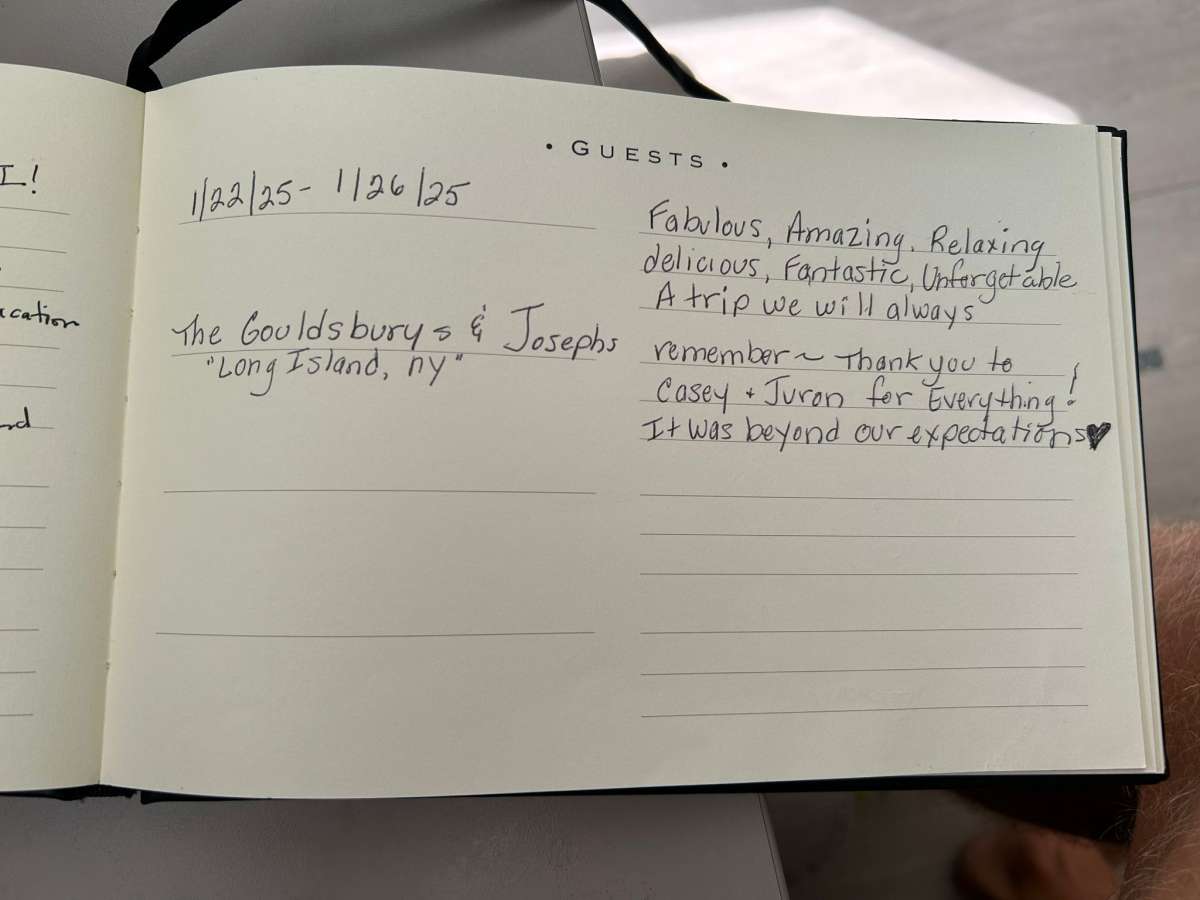 I!
acation
nd
• GUESTS •
1/22/25 - 1/26/25
The Gouldsburys & Josephs
"Long Island, ny"
Fabulous, Amazing. Relaxing
delicious, Fantastic, Unforgetable
A trip we will always
remember ~ Thank you to
Casey + Juron for Everything!
It was beyond our expectations♥